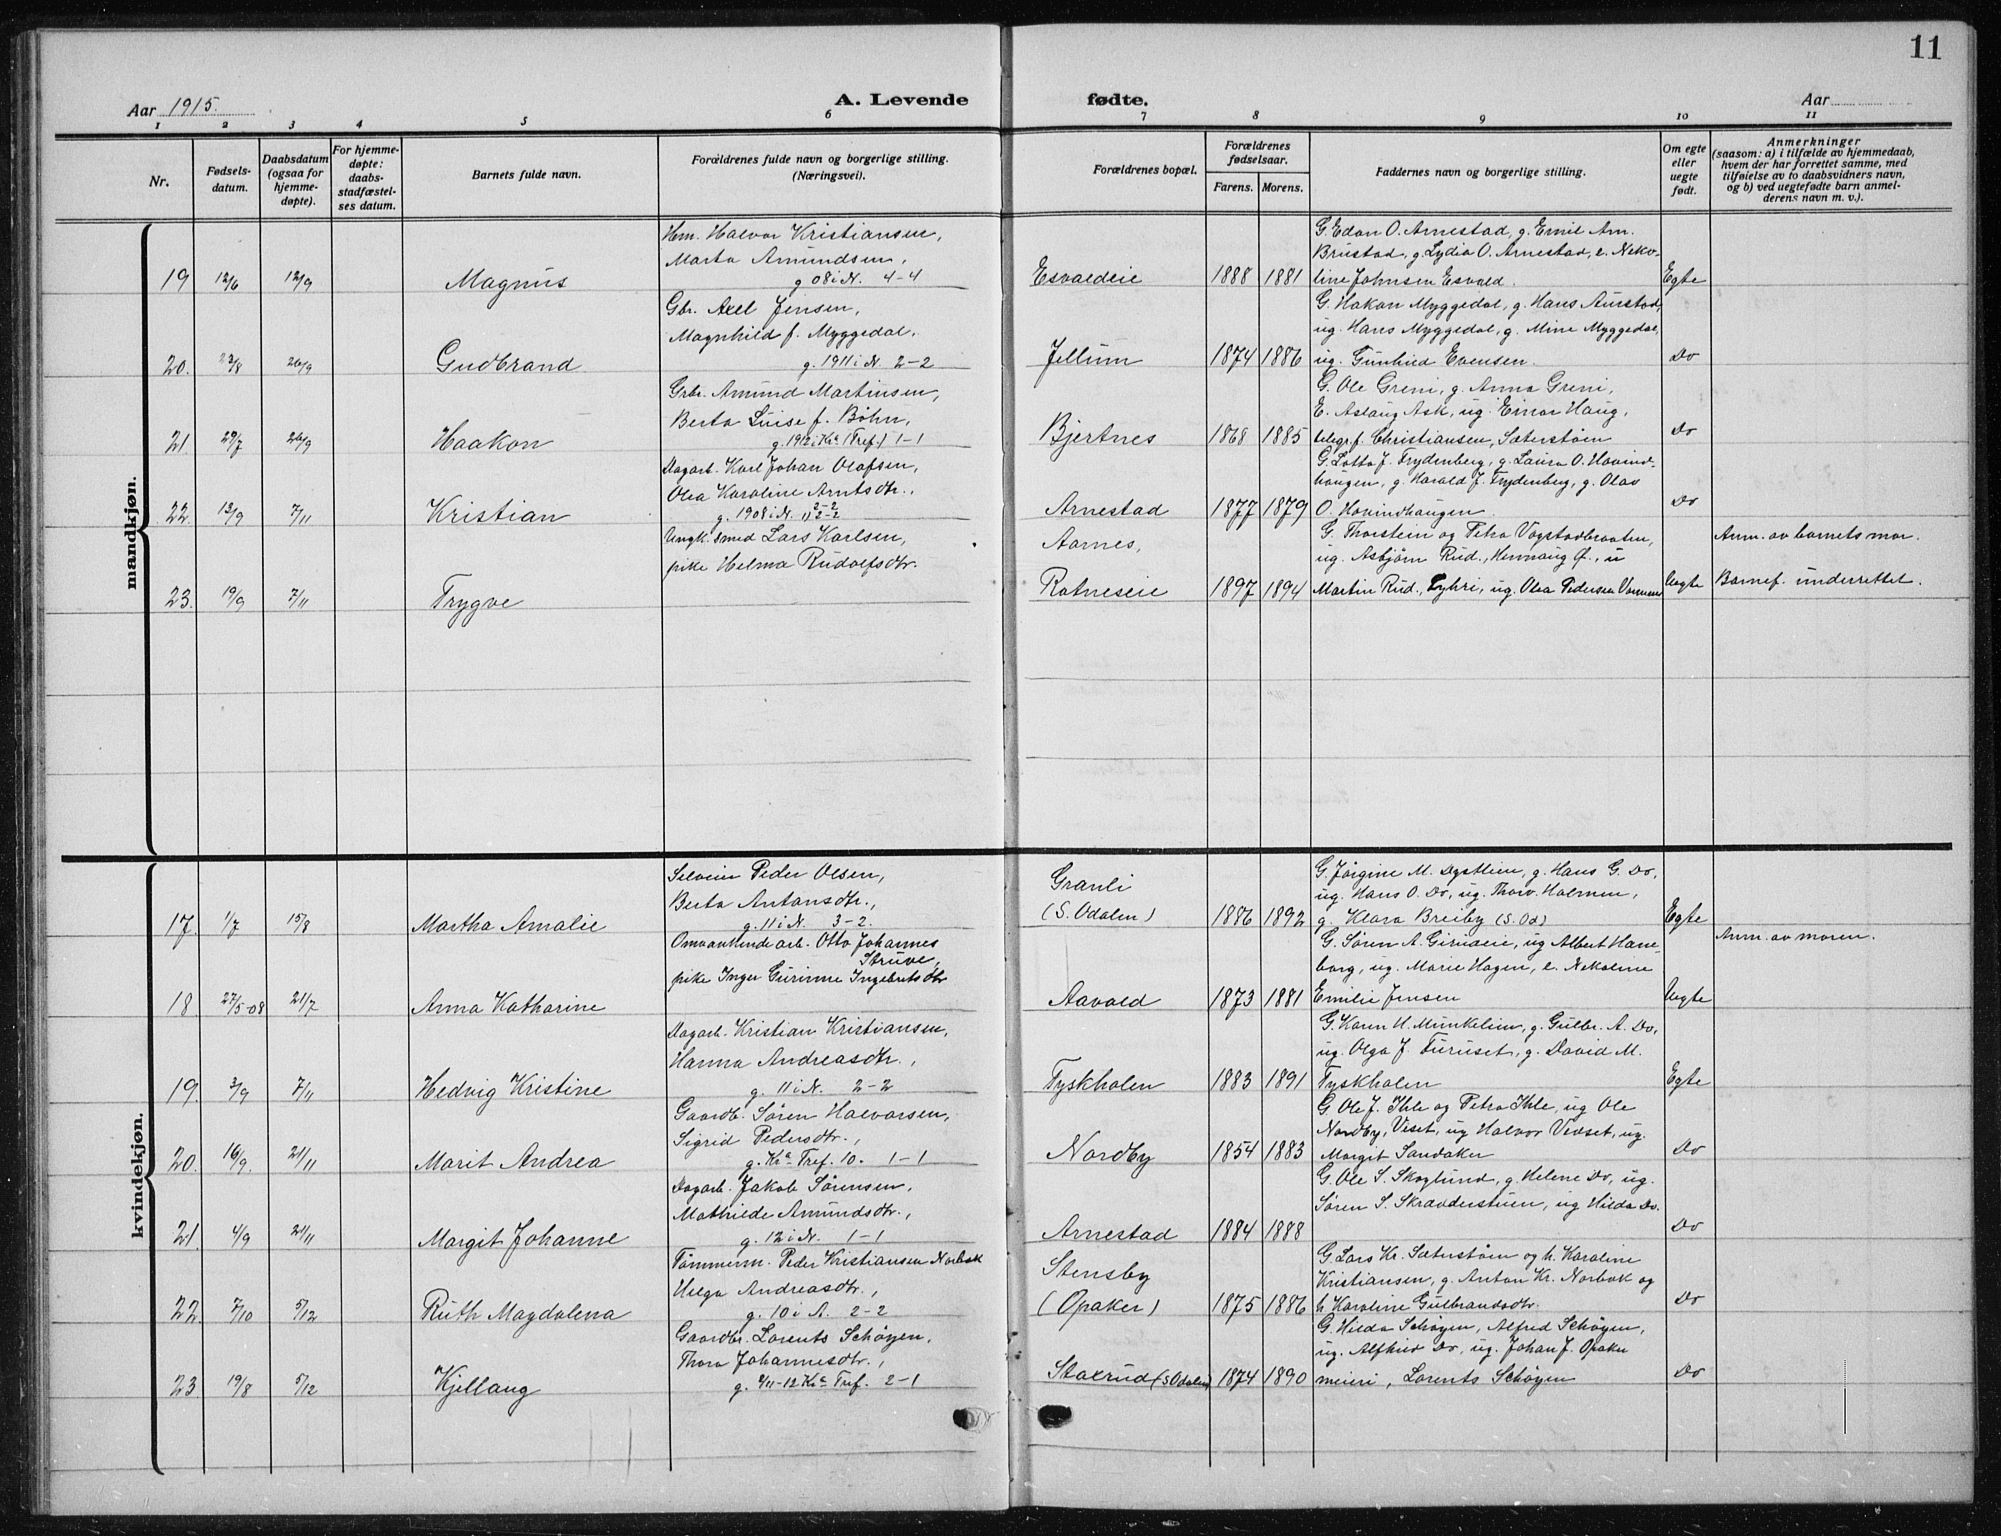 11
Aar 1915.
A. Levende fødte.
Aar
1 2 3 4 5 6 7 8 9 10 11
Nr.
Fødsels-
datum.
Daabsdatum
(ogsaa for
hjemme-
døpte).
For hjemme-
døpte:
daabs-
stadfæstel-
ses datum.
Barnets fulde navn.
Forældrenes fulde navn og borgerlige stilling.
(Næringsvei).
Forældrenes bopæl.
Forældrenes
fødselsaar.
Farens. Morens.
Faddernes navn og borgerlige stilling.
Om egte
eller
uegte
født.
Anmerkninger
(saasom: a) i tilfælde av hjemmedaab,
hvem der har forrettet samme, med
tilføielse av to daabsvidners navn,
og b) ved uegtefødte barn anmel-
derens navn m. v.).
mandkjøn.
19 12/6 12/9 Magnus
Hm. Halvor Kristiansen,
Marta Amundsen,
g 08 i N. 4-4
Esvaldeie 1888 1881
G. Edon O. Arnestad, g. Emil Am.
Brustad, g. Lydia O. Arnestad, e. Neko-
line Johnsen Esvald.
Egte
20. 23/8 26/9 Gudbrand
Gbr. Axel Jensen,
Magnhild f. Myggedal.
g. 1911 i N. 2-2
Jellum 1874 1886
G. Hakon Myggedal, g. Hans Aurstad,
ug. Hans Myggedal, g. Mine Myggedal,
ug. Gunhild Evensen.
Do
21 29/7 26/9 Haakon
Grbr. Amund Martinsen,
Berta Luise f. Bøhn,
g. 1912 i Kr.a (Tref.) 1-1
Bjertnes 1868 1885
G. Ole Greni, g. Anna Greni,
E. Aslaug Ask, ug. Einar Haug,
telegr.f. Christiansen, Sæterstøen
Do
22. 13/9 7/11 Kristian
Dagarb. Karl Johan Olafsen,
Olea Karoline Arntsdtr.,
g. 1908 i N. 2-2
Arnestad 1877 1879
G. Lotta J. Frydenberg, g. Laura O. Hovind-
haugen, g. Harald J. Frydenberg, g. Olav
O. Hovindhaugen.
Do
23. 19/9 7/11 Trygve
Ungk. smed Lars Karlsen,
pike Helma Rudolfsdtr.
Aarnes,
Rotneseie 1897 1894
G. Thorstein og Petra Vogstadbraaten,
ug. Asbjørn Rud., Hennaug Ø., u
Martin Rud., ug. Olea Pedersen
Uegte
Anm. av barnets mor.
Barnef. underrettet.
kvindekjøn.
17. 1/7 15/8 Martha Amalie
Selveier Peder Olsen,
Berta Antonsdtr.,
g. 11 i N. 3-2.
Granli
(S. Odalen) 1886 1892
G. Jørgine M. Dystlien, g. Hans G. Do,
ug. Hans O. Do, ug. Thorv. Holmen,
g. Klara Breiby (S. Od)
Egte
18 27/5-08 21/7 Anna Katharine
Omvankende arb. Otto Johannes
Struve,
pike Inger Gurinne Ingebretsdtr
Aavald 1873 1881
G. Søren A. Girudeie, ug Albert Hane-
borg, ug. Marie Hagen, e. Nekoline
Emilie Jensen
Uegte
Anm. av moren.
19. 3/9 7/11 Hedvig Kristine
Dagarb. Kristian Kristiansen,
Hanna Andreasdtr.,
g. 11 i N. 2-2
Tyskholen 1883 1891
G. Karen H. Munkelien, g. Gulbr. A. Do,
ug. Olga J. Furuset, g. David M.
Tyskholen
Egte
20. 16/9. 21/11 Marit Andrea
Gaardb. Søren Halvorsen,
Sigrid Pedersdtr.,
g. Kr.a Tref. 10. 1-1
Nordby 1854 1883
G. Ole J. Ihle og Petra Ihle, ug Ole
Nordby, Veset, ug Halvor Veset, ug.
Margit Sandaker
Do
21. 4/9 21/11 Margit Johanne
Dagarb. Jakob Sørensen,
Mathilde Amundsdtr.,
g. 12 i N. 1-1
Arnestad 1884 1888
G. Ole S. Skoglund, g. Helene Do, ug.
Søren S. Skradderstuen, ug Hilda Do.
Do
22. 7/10 5/12 Ruth Magdalena
Tømmerm. Peder Kristiansen Norbak
Helga Andreasdtr.,
g. 10 i A. 2-2
Stensby
(Opaker) 1875 1886
G. Lars Kr. Sæterstøen og h. Karoline
Kristiansen, g. Anton Kr. Norbak og
h Karoline Gulbrandsdtr.
Do
23 19/8 5/12 Kjellaug
Gaardbr. Lorents Schøyen,
Thora Johannesdtr.,
g. 9/11-12 Kr.a Tref. 2-1
Staxrud (S Odalen) 1874 1890
G. Hilda Schøyen, Alfred Schøyen,
ug. Alfhild Do, ug. Johan J. Opaker
meieri, Lorents Schøyen
Do